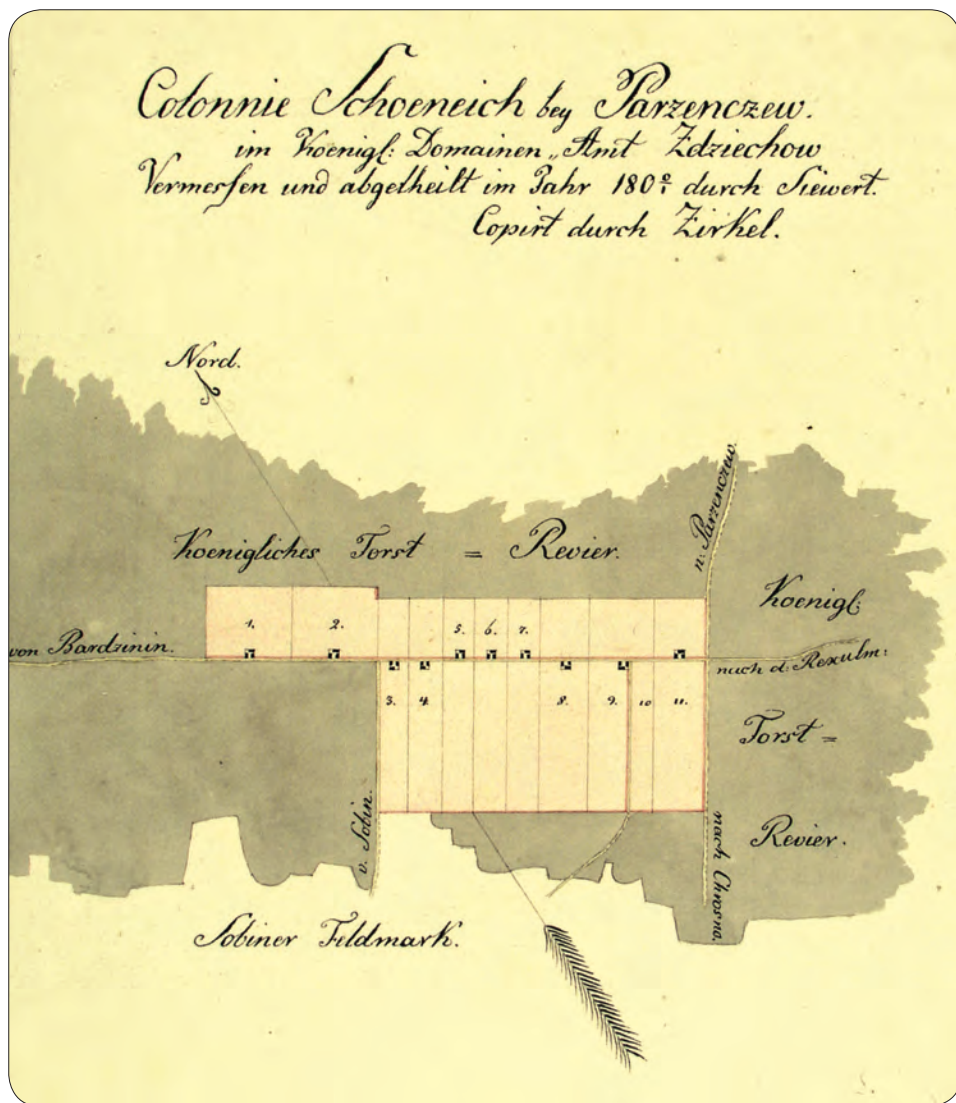 Colonnie Schoeneich bey Parzenczew.
im Koenigl: Domainen „Amt Zdziechow
Vermessen und abgetheilt im Jahr 180 2/1 durch Siewert.
Copirt durch Zirkel.
Nord.
n: Parzenczew.
Koenigliches Forst = Revier.
Koenigl:
1. 2. 5. 6. 7.
von Bardzinin.
nach d: Rexulm:
3. 4. 8. 9. 10 11.
Forst =
v. Sobin.
nach Chrosno.
Revier.
Sobiner Feldmark.